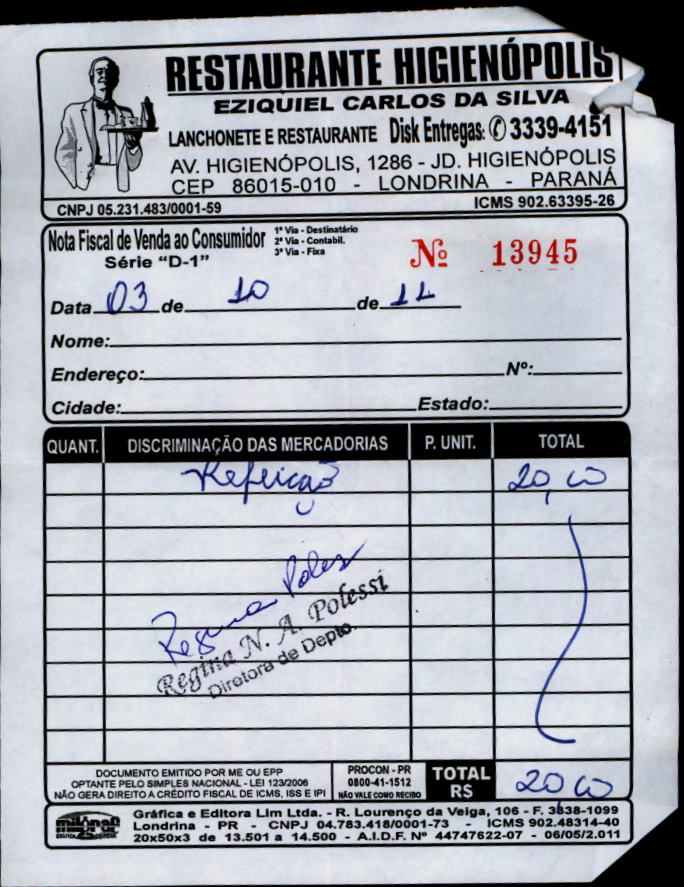 RESTAURANTE HIGIENÓPOLIS
EZIQUIEL CARLOS DA SILVA
LANCHONETE E RESTAURANTE Disk Entregas: ✆ 3339-4151
AV. HIGIENÓPOLIS, 1286 - JD. HIGIENÓPOLIS
CEP 86015-010 - LONDRINA - PARANÁ
CNPJ 05.231.483/0001-59 ICMS 902.63395-26
Nota Fiscal de Venda ao Consumidor
Série "D-1"
1ª Via - Destinatário
2ª Via - Contabil.
3ª Via - Fixa
Nº 13945
Data 03 de 10 de 11
Nome:
Endereço: Nº:
Cidade: Estado:
QUANT. DISCRIMINAÇÃO DAS MERCADORIAS P. UNIT. TOTAL
Refeição 20,00
Regina Poles
Regina N. A. Polessi
Diretora de Depto.
DOCUMENTO EMITIDO POR ME OU EPP
OPTANTE PELO SIMPLES NACIONAL - LEI 123/2006
NÃO GERA DIREITO A CRÉDITO FISCAL DE ICMS, ISS E IPI
PROCON - PR
0800-41-1512
NÃO VALE COMO RECIBO
TOTAL R$ 20,00
Gráfica e Editora Lim Ltda. - R. Lourenço da Veiga, 106 - F. 3338-1099
Londrina - PR - CNPJ 04.783.418/0001-73 - ICMS 902.48314-40
20x50x3 de 13.501 a 14.500 - A.I.D.F. Nº 44747622-07 - 06/05/2.011